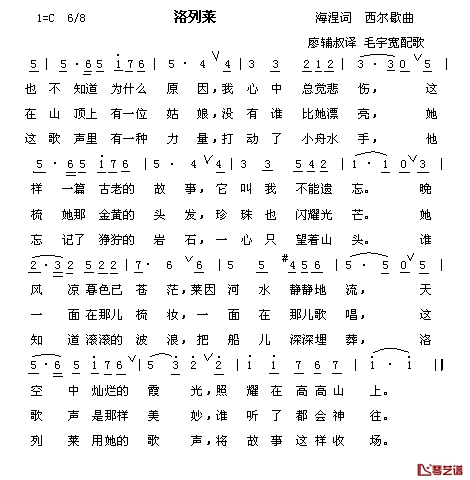 洛列莱
1=C 6/8 海涅词 西尔歇曲
廖辅叔译 毛宇宽配歌
5 5·6 5 1 7 6 5· 4 4 3 3 2 1 2 3· 3 0 5
也 不 知道 为什么 原 因,我 心 中 总觉悲 伤, 这
在 山 顶上 有一位 姑 娘,没 有 谁 比她漂 亮, 她
这 歌 声里 有一种 力 量,打 动 了 小舟水 手, 他
5·6 5 1 7 6 5· 4 4 3 3 5 4 2 1· 1 0 3
样 一篇 古老的 故 事,它 叫 我 不能遗 忘。晚
梳 她那 金黄的 头 发,珍 珠 也 闪耀光 芒。她
忘 记了 狰狞的 岩 石,一 心 只 望着山 头。谁
2·3 2 5 2 2 7· 6 5 5 5 #4 5 6 5· 5 0 5
风 凉 暮色已 苍 茫,莱因 河 水 静静地 流,天
一 面 在那儿 梳 妆,一 面 在 那儿歌 唱,这
知 道 滚滚的 波 浪,把 船 儿 深深埋 葬,洛
5·6 5 1 7 6 5 3· 3 2 1 7 6 7 1· 1 0
空 中 灿烂的 霞 光,照 耀 在 高高山 上。
歌 声 是那样 美 妙,谁 听 了 都会神 往。
列 莱 用她的 歌 声,将 故 事 这样收 场。
琴艺谱